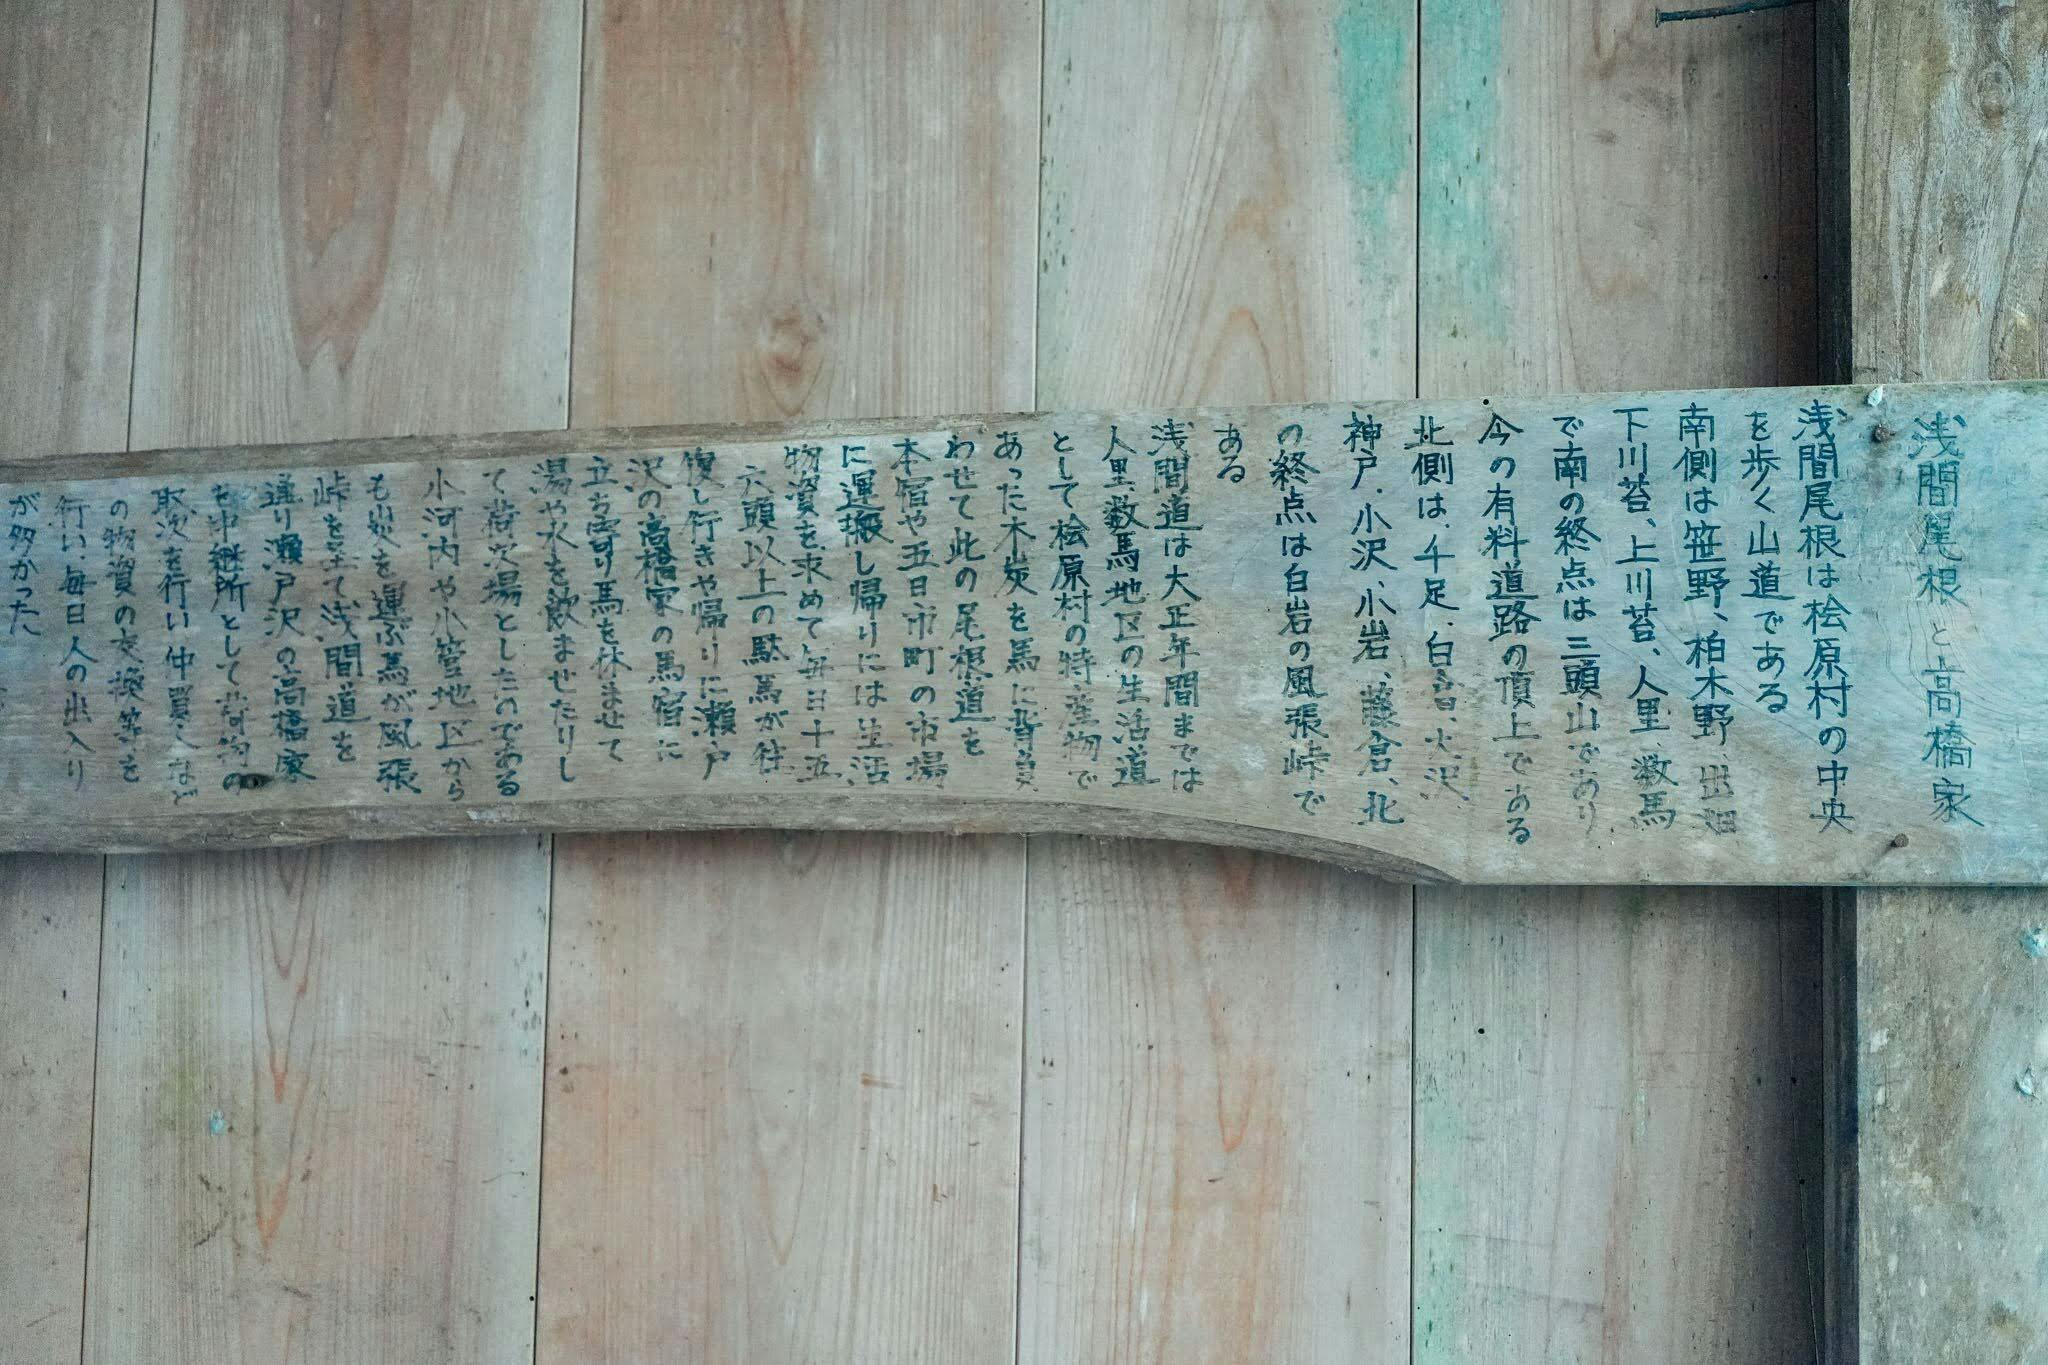 浅間尾根と高橋家
浅間尾根は桧原村の中央
を歩く山道である
南側は笹野、柏木野、出畑
下川苔、上川苔、人里、数馬
で南の終点は三頭山であり
今の有料道路の頂上である
北側は、千足、白倉、大沢、
神戸、小沢、小岩、藤倉、北
の終点は白岩の風張峠で
ある
浅間道は大正年間までは
人里、数馬地区の生活道
として桧原村の特産物で
あった木炭を馬に背負
わせて此の尾根道を
本宿や五日市町の市場
に運搬し帰りには生活
物資を求めて毎日十五
六頭以上の駄馬が往
復し行きや帰りに瀬戸
沢の高橋家の馬宿に
立ち寄り馬を休ませて
湯や水を飲ませたりし
て荷次場としたのである
小河内や小菅地区から
も炭を運ぶ馬が風張
峠を至て浅間道を
通り瀬戸沢の高橋家
を中継所として荷物の
取次を行い仲買人など
の物資の交換等を
行い、毎日人の出入り
が多かった